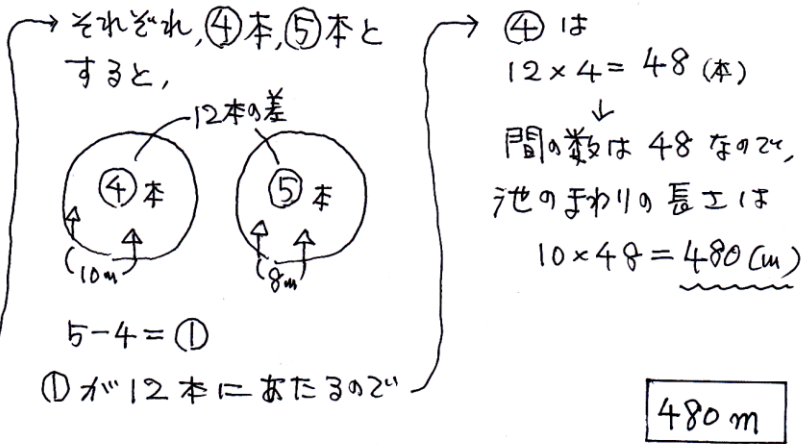 それぞれ,④本,⑤本と
すると,
12本の差
④本
⑤本
10m
8m
5-4=①
①が12本にあたるので
④は
12×4=48(本)
↓
間の数は48なので,
池のまわりの長さは
10×48=480(m)
480m